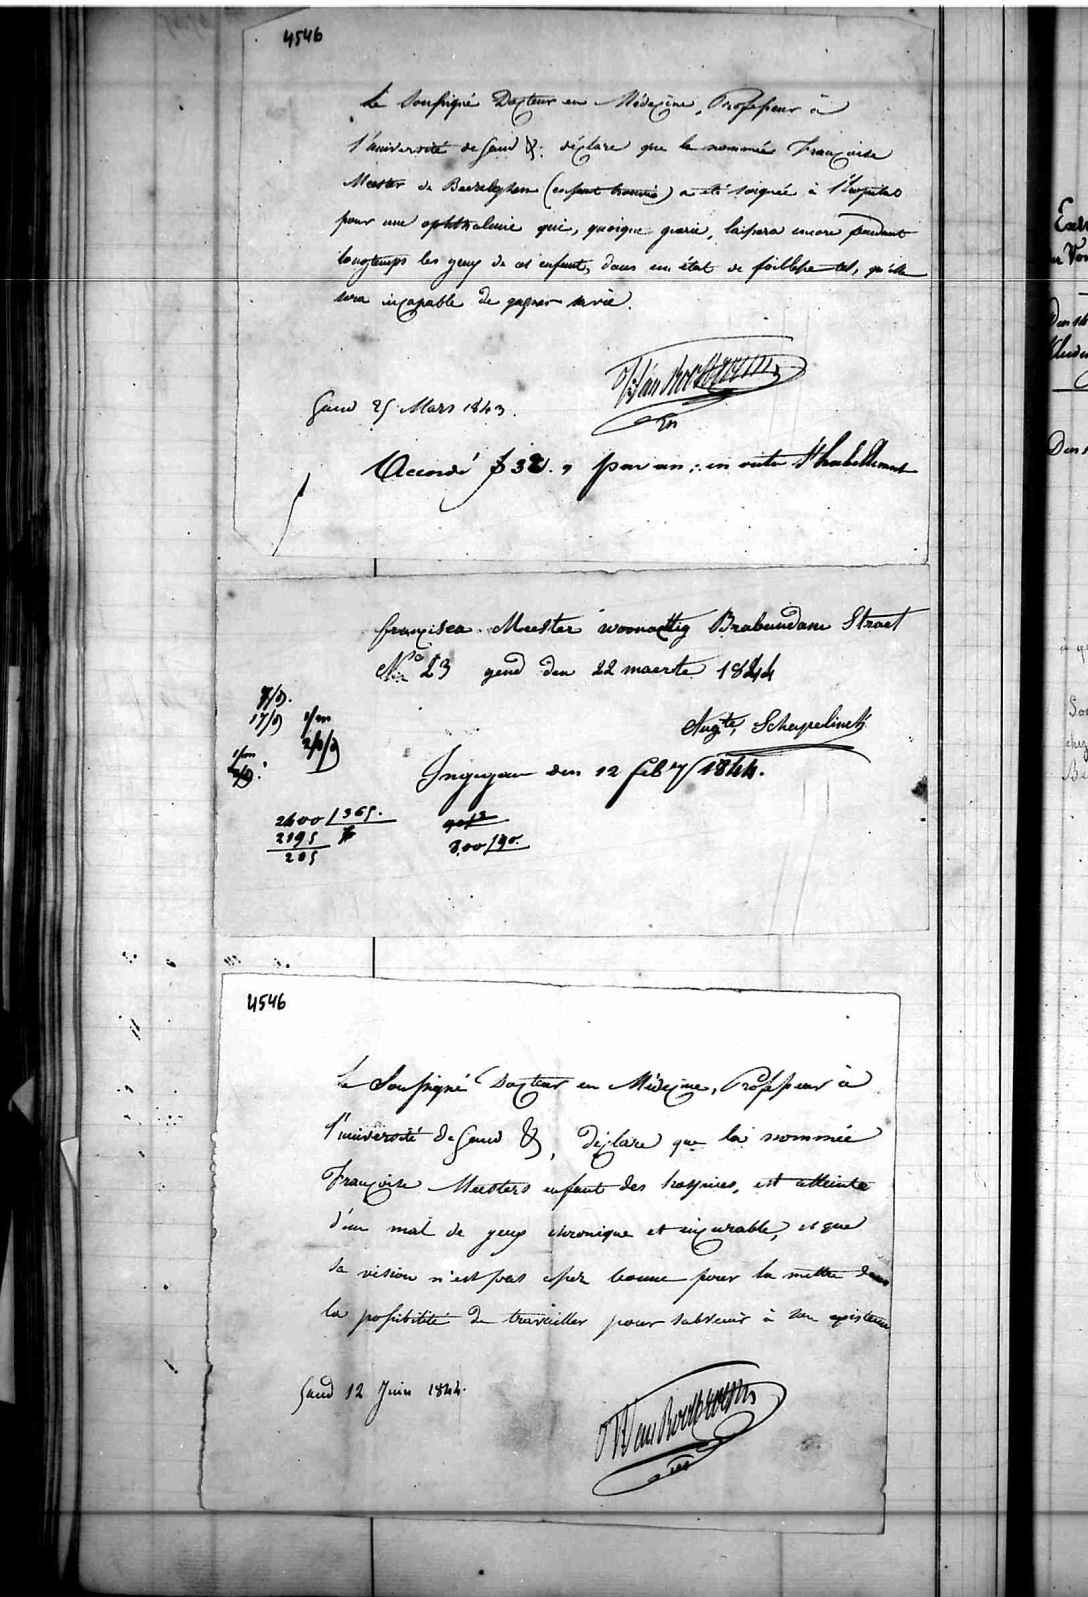 4546
Le soussigné Docteur en Médecine, Professeur à
l'université de Gand &. déclare que la nommée Françoise
Meester de (enfant trouvé) a été soignée à l'hopital
pour une ophthalmie qui, quoique guérie, laissera encore pendant
longtemps les yeux de cet enfant, dans un état de foiblesse tel, qu'elle
sera incapable de gagner sa vie.
Gand 25 Mars 1843.
Accordé f 32. " par an: en outre l'habillement
francisca Meester woonachtig Brabandam Straet
No 23 gend den 22 maerte 1844
Augte,
den 12 feby 1844.
17/9 1/m
2400/365.
2195
205
800/90.
4546
Le Soussigné Docteur en Médecine, Professeur à
l'université de Gand &, déclare que la nommée
Françoise Meesters enfant des hospices, est atteinte
d'un mal de yeux chronique et incurable, et que
sa vision n'est pas assez bonne pour la mettre dans
la possibilité de travailler pour subvenir à son existence
Gand 12 Juin 1844.